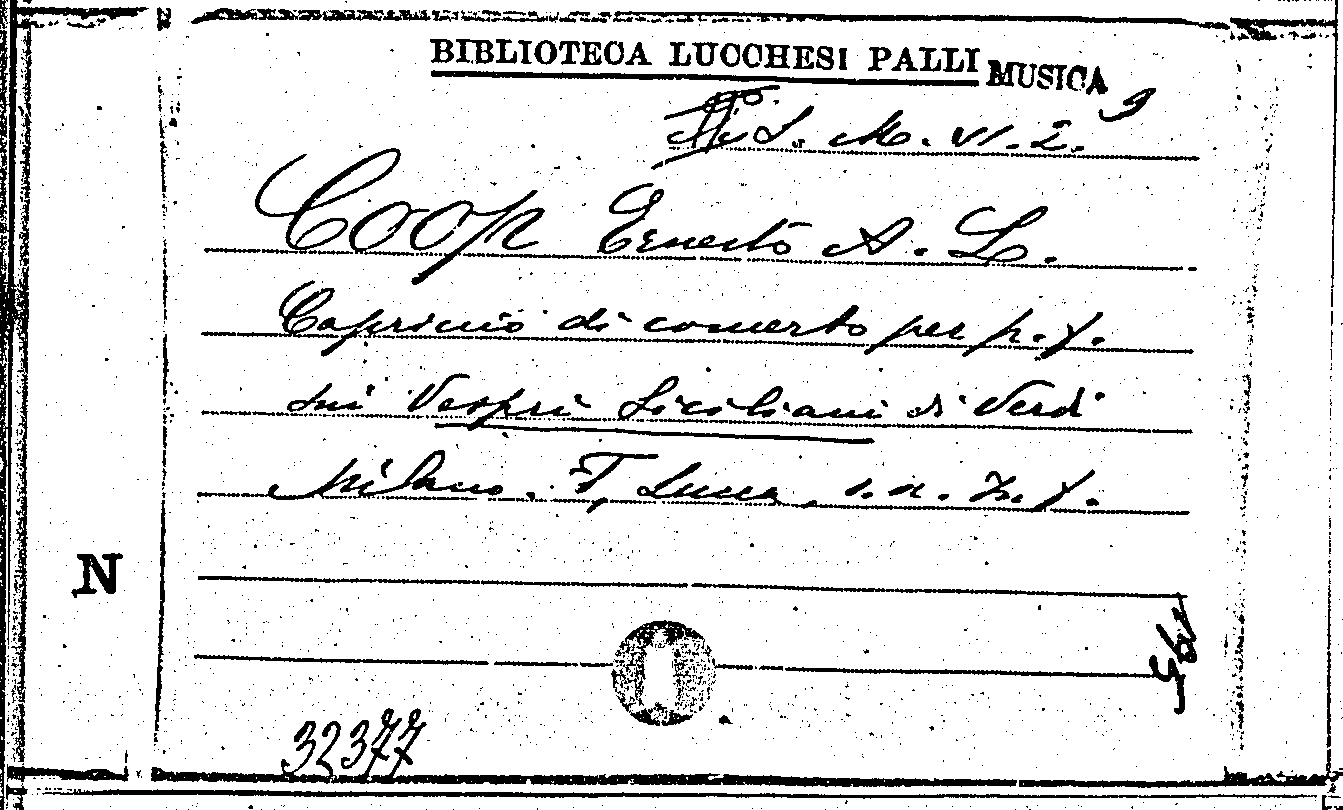 BIBLIOTECA LUCCHESI PALLI MUSICA
S. M. VI. 2. 9
Coop Ernesto A. L.
Capriccio di concerto per p. f.
sui Vespri Siciliani di Verdi
Milano. F. Lucca, s. n. In f.
N
32377